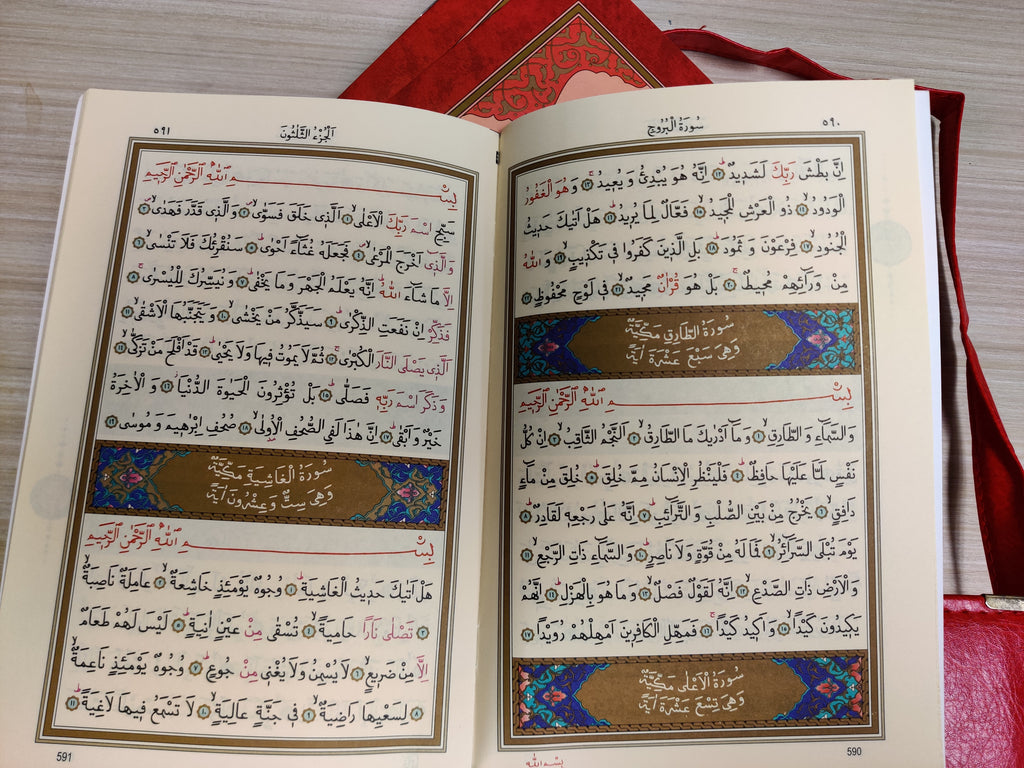 ٥٩٠
سُورَةُ الْبُرُوجِ
اِنَّ بَطْشَ رَبِّكَ لَشَدٖيدٌ ﴿١٢﴾ اِنَّهُ هُوَ يُبْدِئُ وَ يُعٖيدُ ﴿١٣﴾ وَهُوَ الْغَفُورُ
الْوَدُودُ ﴿١٤﴾ ذُو الْعَرْشِ الْمَجٖيدُ ﴿١٥﴾ فَعَّالٌ لِمَا يُرٖيدُ ﴿١٦﴾ هَلْ اَتٰيكَ حَدٖيثُ
الْجُنُودِ ﴿١٧﴾ فِرْعَوْنَ وَ ثَمُودَ ﴿١٨﴾ بَلِ الَّذٖينَ كَفَرُوا فٖى تَكْذٖيبٍ ﴿١٩﴾ وَ اللّٰهُ
مِنْ وَرَٓائِهِمْ مُحٖيطٌ ﴿٢٠﴾ بَلْ هُوَ قُرْاٰنٌ مَجٖيدٌ ﴿٢١﴾ فٖى لَوْحٍ مَحْفُوظٍ ﴿٢٢﴾
سُورَةُ الطَّارِقِ مَكِّيَّةٌ
وَهِىَ سَبْعَ عَشْرَةَ اٰيَةً
بِسْمِ اللّٰهِ الرَّحْمٰنِ الرَّحٖيمِ
وَالسَّمَٓاءِ وَ الطَّارِقِ ﴿١﴾ وَمَٓا اَدْرٰيكَ مَا الطَّارِقُ ﴿٢﴾ اَلنَّجْمُ الثَّاقِبُ ﴿٣﴾ اِنْ كُلُّ
نَفْسٍ لَمَّا عَلَيْهَا حَافِظٌ ﴿٤﴾ فَلْيَنْظُرِ الْاِنْسَانُ مِمَّ خُلِقَ ﴿٥﴾ خُلِقَ مِنْ مَٓاءٍ
دَافِقٍ ﴿٦﴾ يَخْرُجُ مِنْ بَيْنِ الصُّلْبِ وَ التَّرَٓائِبِ ﴿٧﴾ اِنَّهُ عَلٰى رَجْعِهٖ لَقَادِرٌ ﴿٨﴾
يَوْمَ تُبْلَى السَّرَٓائِرُ ﴿٩﴾ فَمَا لَهُ مِنْ قُوَّةٍ وَ لَا نَاصِرٍ ﴿١٠﴾ وَ السَّمَٓاءِ ذَاتِ الرَّجْعِ ﴿١١﴾
وَ الْاَرْضِ ذَاتِ الصَّدْعِ ﴿١٢﴾ اِنَّهُ لَقَوْلٌ فَصْلٌ ﴿١٣﴾ وَ مَا هُوَ بِالْهَزْلِ ﴿١٤﴾ اِنَّهُمْ
يَكٖيدُونَ كَيْدًا ﴿١٥﴾ وَ اَكٖيدُ كَيْدًا ﴿١٦﴾ فَمَهِّلِ الْكَافِرٖينَ اَمْهِلْهُمْ رُوَيْدًا ﴿١٧﴾
سُورَةُ الْاَعْلٰى مَكِّيَّةٌ
وَهِىَ تِسْعَ عَشْرَةَ اٰيَةً
590
بِسْمِ اللّٰهِ
٥٩١
اَلْجُزْءُ الثَّلٰثُونَ
بِسْمِ اللّٰهِ الرَّحْمٰنِ الرَّحٖيمِ
سَبِّحِ اسْمَ رَبِّكَ الْاَعْلٰى ﴿١﴾ اَلَّذٖى خَلَقَ فَسَوّٰى ﴿٢﴾ وَ الَّذٖى قَدَّرَ فَهَدٰى ﴿٣﴾
وَ الَّذٖٓى اَخْرَجَ الْمَرْعٰى ﴿٤﴾ فَجَعَلَهُ غُثَٓاءً اَحْوٰى ﴿٥﴾ سَنُقْرِئُكَ فَلَا تَنْسٰى ﴿٦﴾
اِلَّا مَا شَٓاءَ اللّٰهُ اِنَّهُ يَعْلَمُ الْجَهْرَ وَ مَا يَخْفٰى ﴿٧﴾ وَ نُيَسِّرُكَ لِلْيُسْرٰى ﴿٨﴾
فَذَكِّرْ اِنْ نَفَعَتِ الذِّكْرٰى ﴿٩﴾ سَيَذَّكَّرُ مَنْ يَخْشٰى ﴿١٠﴾ وَ يَتَجَنَّبُهَا الْاَشْقٰى ﴿١١﴾
اَلَّذٖى يَصْلَى النَّارَ الْكُبْرٰى ﴿١٢﴾ ثُمَّ لَا يَمُوتُ فٖيهَا وَلَا يَحْيٰى ﴿١٣﴾ قَدْ اَفْلَحَ مَنْ تَزَكّٰى ﴿١٤﴾
وَ ذَكَرَ اسْمَ رَبِّهٖ فَصَلّٰى ﴿١٥﴾ بَلْ تُؤْثِرُونَ الْحَيٰوةَ الدُّنْيَا ﴿١٦﴾ وَ الْاٰخِرَةُ
خَيْرٌ وَ اَبْقٰى ﴿١٧﴾ اِنَّ هٰذَا لَفِى الصُّحُفِ الْاُولٰى ﴿١٨﴾ صُحُفِ اِبْرٰهٖيمَ وَ مُوسٰى ﴿١٩﴾
سُورَةُ الْغَاشِيَةِ مَكِّيَّةٌ
وَهِىَ سِتٌّ وَ عِشْرُونَ اٰيَةً
بِسْمِ اللّٰهِ الرَّحْمٰنِ الرَّحٖيمِ
هَلْ اَتٰيكَ حَدٖيثُ الْغَاشِيَةِ ﴿١﴾ وُجُوهٌ يَوْمَئِذٍ خَاشِعَةٌ ﴿٢﴾ عَامِلَةٌ نَاصِبَةٌ
﴿٣﴾ تَصْلٰى نَارًا حَامِيَةً ﴿٤﴾ تُسْقٰى مِنْ عَيْنٍ اٰنِيَةٍ ﴿٥﴾ لَيْسَ لَهُمْ طَعَامٌ
اِلَّا مِنْ ضَرٖيعٍ ﴿٦﴾ لَا يُسْمِنُ وَ لَا يُغْنٖى مِنْ جُوعٍ ﴿٧﴾ وُجُوهٌ يَوْمَئِذٍ نَاعِمَةٌ
﴿٨﴾ لِسَعْيِهَا رَاضِيَةٌ ﴿٩﴾ فٖى جَنَّةٍ عَالِيَةٍ ﴿١٠﴾ لَا تَسْمَعُ فٖيهَا لَاغِيَةً ﴿١١﴾
591